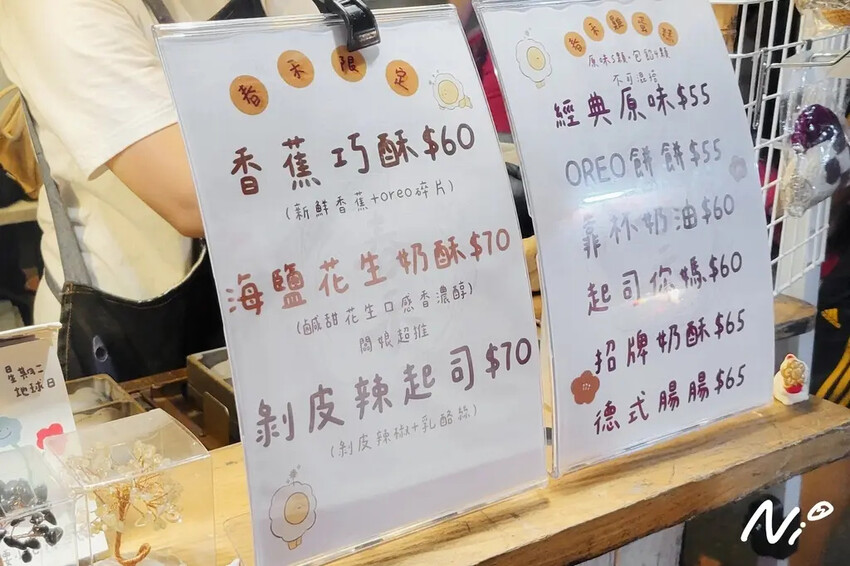 香蕉巧酥$60
(新鮮香蕉+oreo碎片)
海鹽花生奶酥$70
(鹹甜花生口感香濃醇)
闆娘超推
剝皮辣起司$70
(剝皮辣椒+乳酪絲)
原味5顆·包餡4顆
不可混搭
經典原味$55
OREO餅餅$55
靠杯奶油$60
起司你媽$60
招牌奶酥$65
德式腸腸$65
星期二
地球日
Ni